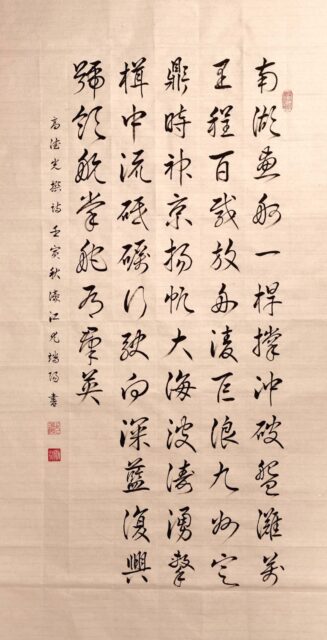 南湖畫船一桿撐沖破灘萬
里程百載放舟凌巨浪九州定
鼎時神京揚帆大海波濤湧擊
楫中流砥礪行駛向深藍復興
號領航掌舵有群英
高光撰詩壬寅秋濠江瑞陽書